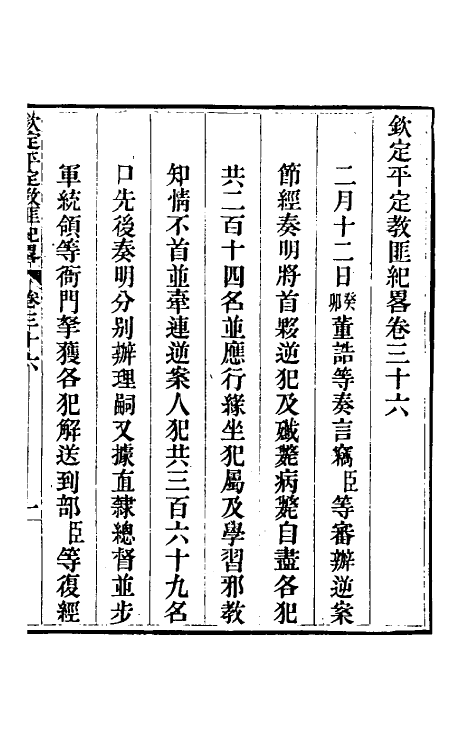 欽定平定教匪紀畧卷三十六
二月十二日癸卯董誥等奏言竊臣等審辦逆案
節經奏明將首夥逆犯及殲斃病斃自盡各犯
共二百十四名並應行緣坐犯屬及學習邪教
知情不首並牽連逆案人犯共三百六十九名
口先後奏明分别辦理嗣又據直隸總督並步
軍統領等衙門拏獲各犯解送到部臣等復經
欽定平定教匪紀畧 卷三十六 一